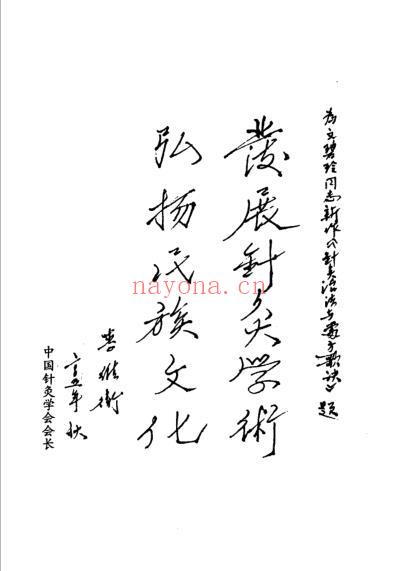 为文碧玲同志新作《針灸治法与處方歌诀》题
發展針灸學術
弘扬民族文化
李维衡
二〇〇五年秋
中国针灸学会会长
nayona.cn